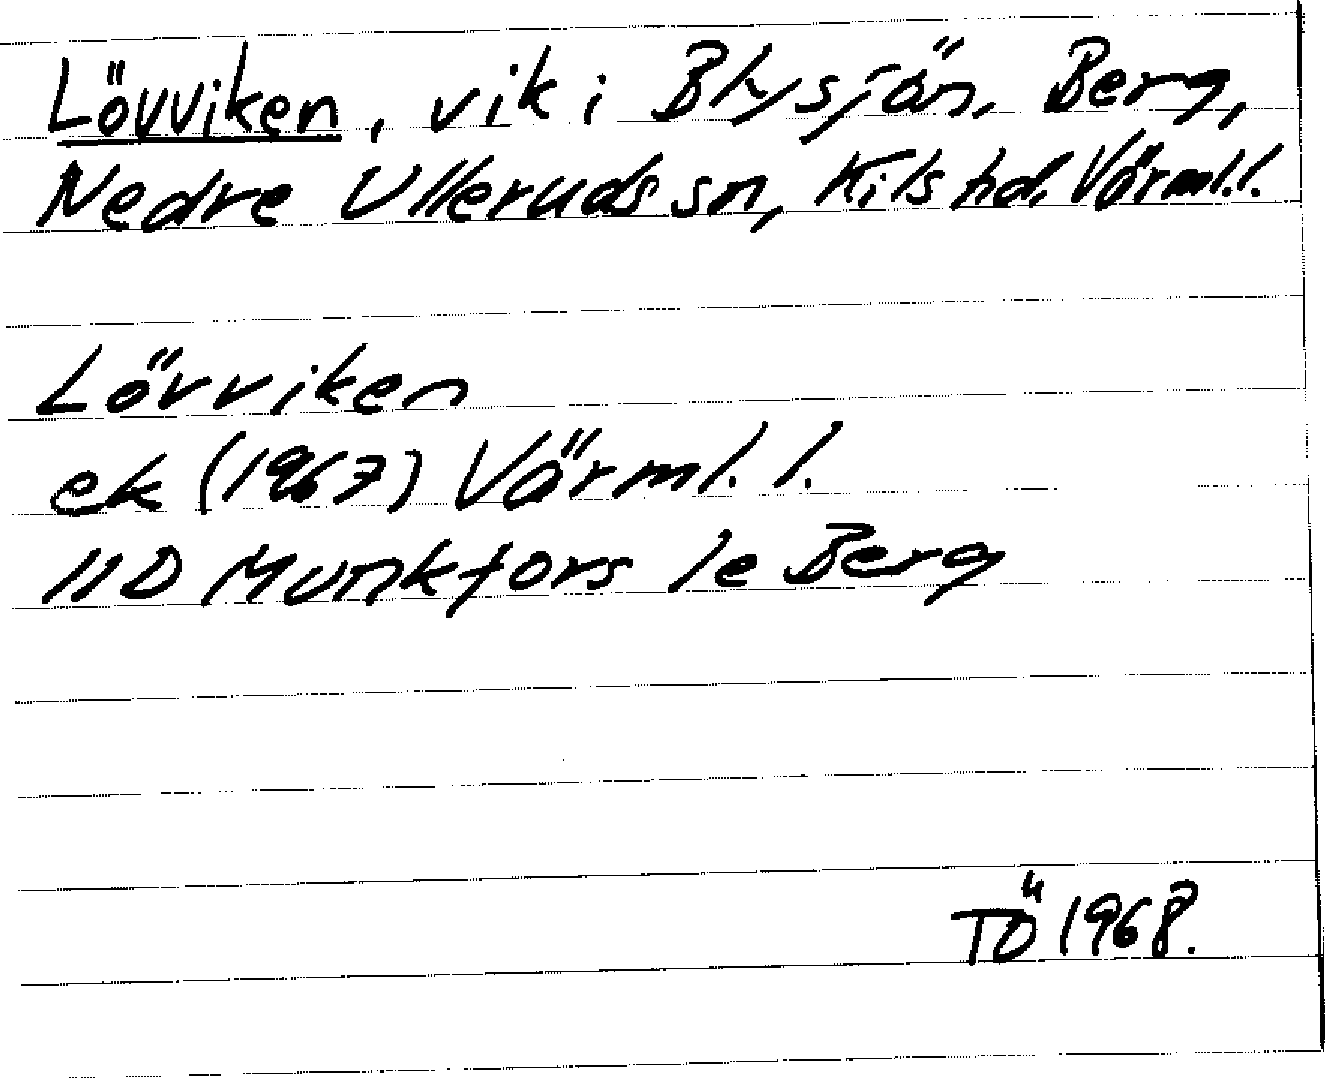 Lövviken, vik i Blysjön, Berg,
Nedre Ulleruds sn, Kils hd, Värml.l.
Lövviken
ek (1967) Värml. l.
11D Munkfors le Berg
TÖ 1968.